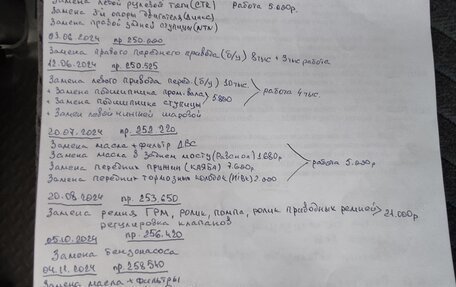 Замена левой рулевой тяги (CTR) работа 5.000р.
Замена 3й опоры двигателя
Замена правой задней ступицы (NTN)
03.06.2024 пр. 250.000
Замена правого переднего привода (б/у) 8тыс + 3тыс работа
12.06.2024 пр. 250.525
Замена левого привода перед. (б/у) 10тыс
+ Замена подшипника пром. вала
+ Замена подшипника ступицы 5800 работа 4 тыс.
+ Замен левой нижней шаровой
20.07.2024 пр. 252.220
Замена масла + фильтр ДВС
Замена масла в заднем мосту (Равенол) 1680р
Замена передних пружин (КАЯБА) 7.600р. работа 5.000р
Замена передних тормозных колодок (NiBK) 2.000
20.08.2024 пр. 253.650
Замена ремня ГРМ, ролик, помпа, ролик приводных ремней 21.000р
регулировка клапанов
05.10.2024 пр. 256.420
Замена бензонасоса
04.11.2024 пр. 258540
Замена масла + фильтры